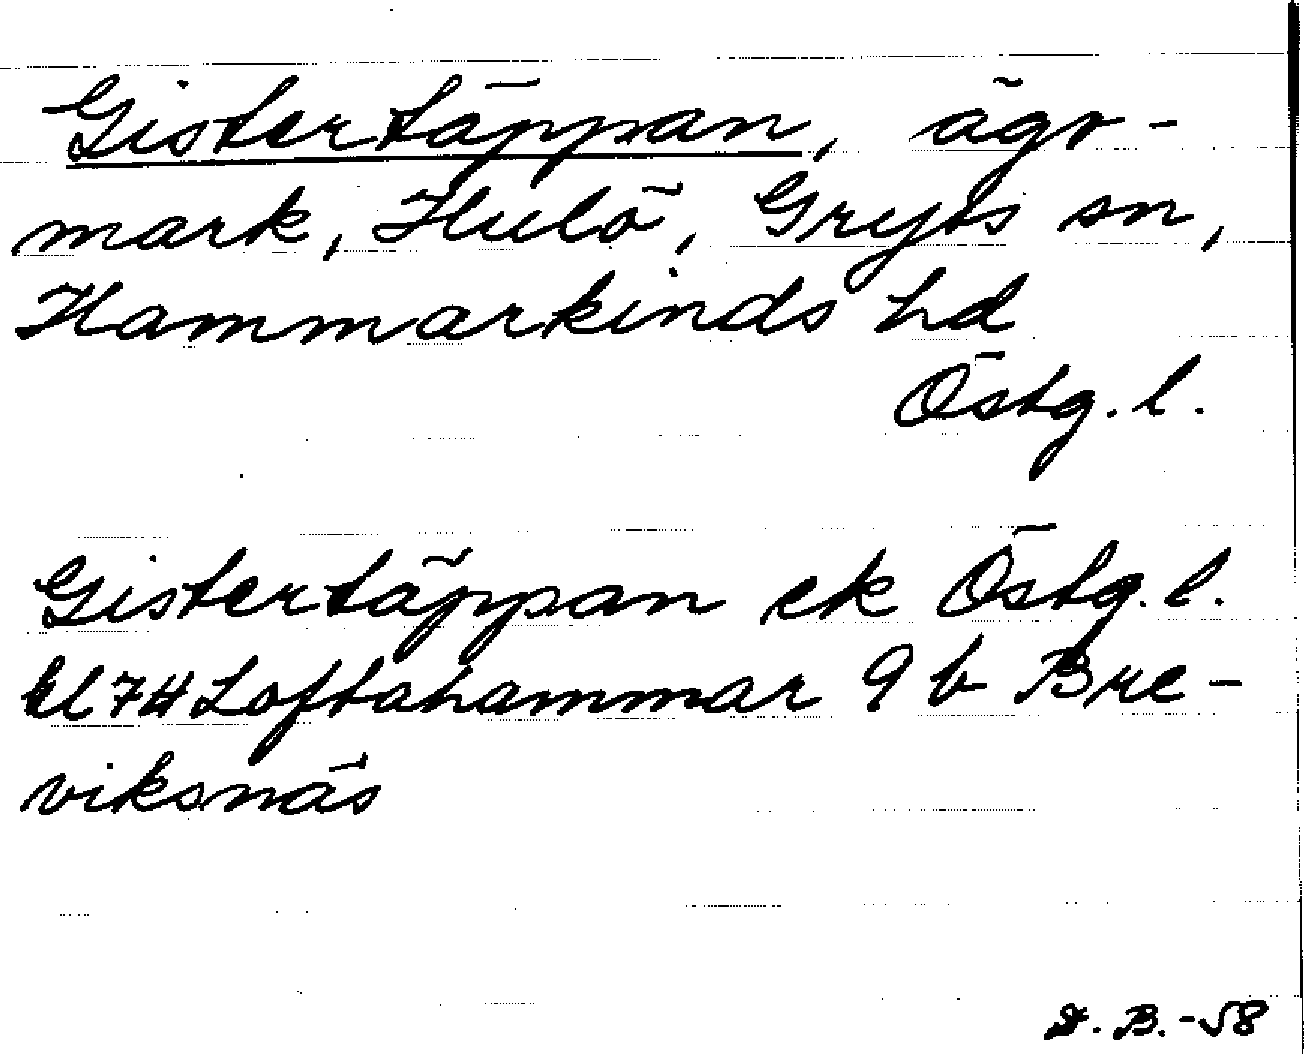 Gistertäppan, ägo-
mark, Hulö, Gryts sn,
Hammarkinds hd
Östg. l.
Gistertäppan ek Östg. l.
bl 7H Loftahammar 9 b Bre-
viksnäs
B.-58